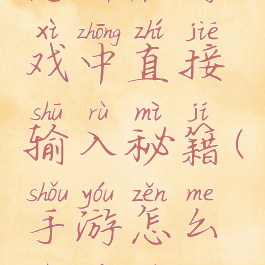 xì zhōng zhí jiē
戏中直接
shū rù mì jí
输入秘籍(
shǒu yóu zěn me
手游怎么